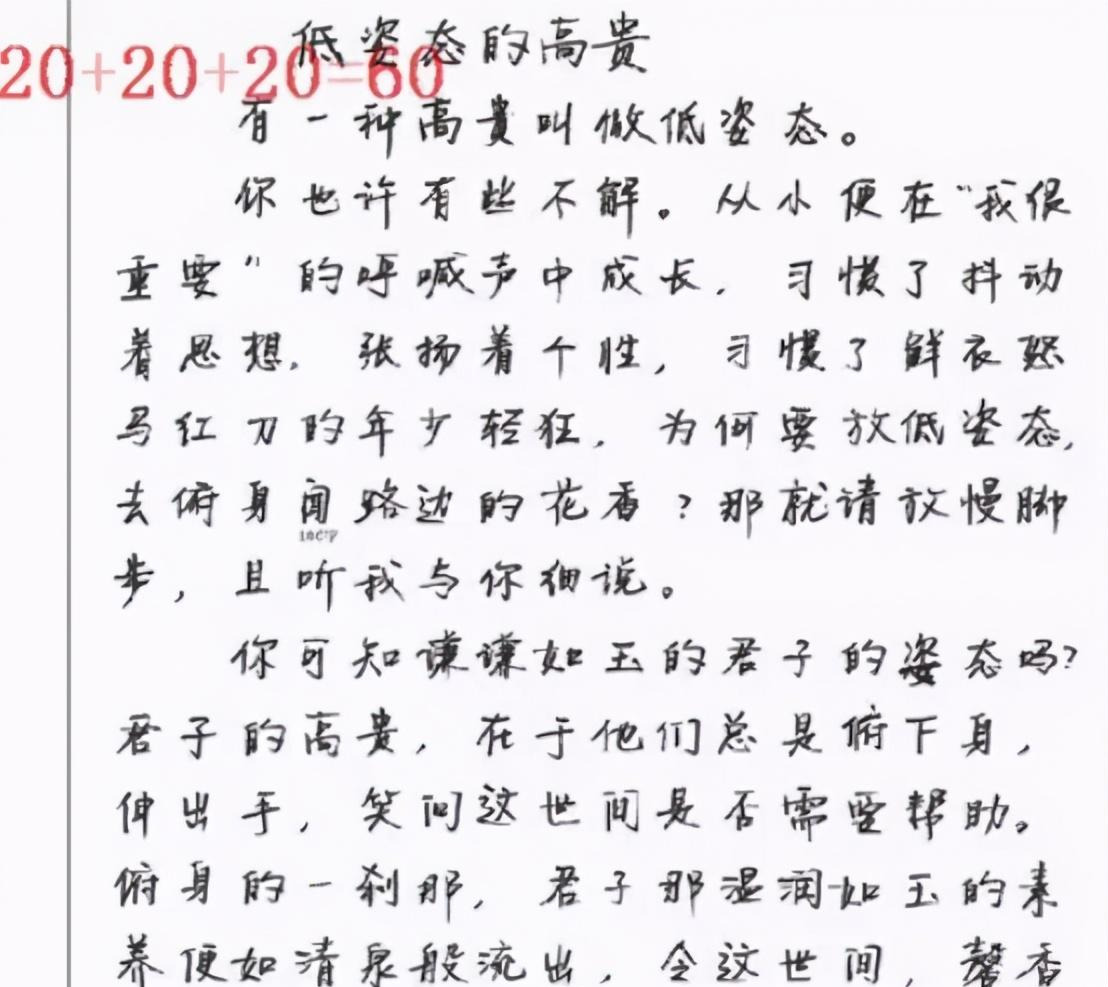 低姿态的高贵
20+20+20=60
有一种高贵叫做低姿态。
你也许有些不解。从小便在“我很
重要”的呼喊声中成长，习惯了抖动
着思想，张扬着个性，习惯了鲜衣怒
马红刀的年少轻狂，为何要放低姿态，
去俯身闻路边的花香？那就请放慢脚
步，且听我与你细说。
你可知谦谦如玉的君子的姿态吗？
君子的高贵，在于他们总是俯下身，
伸出手，笑问这世间是否需要帮助。
俯身的一刹那，君子那湿润如玉的素
养便如清泉般流出，令这世间，馨香